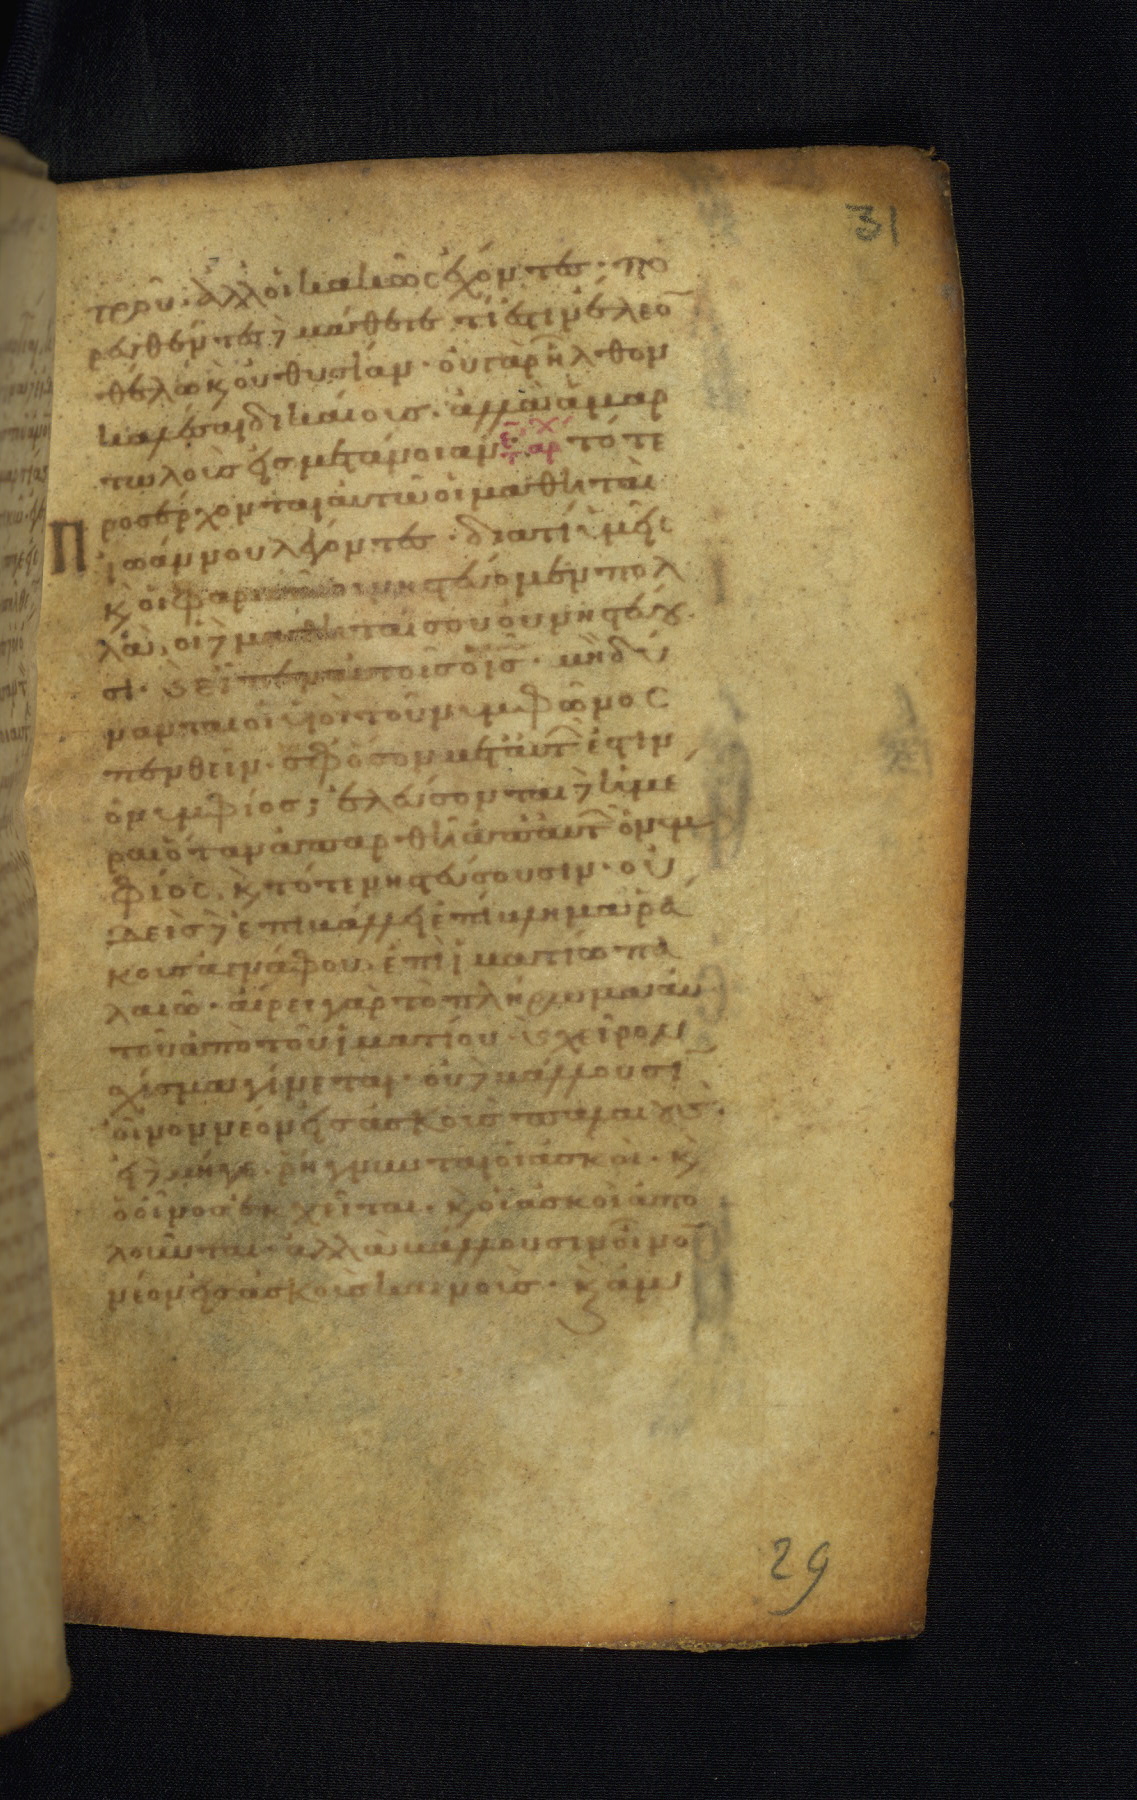 31
τροῦ· ἀλλ' οἱ κακῶς ἔχοντες· πο
ρευθέντες δὲ μάθετε τί ἐστιν ἔλεο̅
θέλω κ̀ οὐ θυσίαν· οὐ γὰρ ἦλθον
καλέσαι δικαίους· ἀλλὰ ἁμαρ
τωλοὺς εἰς μετάνοιαν τότε
προσέρχονται αὐτῶ οἱ μαθηταὶ
ἰωάννου λέγοντες· διατί ἡμεῖς
κ̀ οἱ φαρισαῖοι νηστεύομεν πολ
λὰ, οἱ δὲ μαθηταί σου οὐ νηστεύου
σι· εἶπεν αὐτοῖς ὁ ι̅ς̅· μὴ δύ
νανται οἱ υἱοὶ τοῦ νυμφῶνος
πενθεῖν· ἐφ' ὅσον μετ' αὐτ ἐστιν
ὁ νυμφίος; ἐλεύσονται δὲ ἡμέ
ραι ὅταν ἀπαρθῆ ἀπ' αὐτ ὁ νυμ
φίος, κ̀ τότε νηστεύσουσιν· οὐ
δεὶς δὲ ἐπιβάλλει ἐπίβλημα ῥά
κους ἀγνάφου ἐπὶ ἱματίω πα
λαιῶ· αἴρει γὰρ τὸ πλήρωμα αὐ
τοῦ ἀπὸ τοῦ ἱματίου· κ̀ χεῖρον
σχίσμα γίνεται· οὐδὲ βάλλουσι̅
οἶνον νέον εἰς ἀσκοὺς παλαιούς·
εἰ δὲ μήγε· ῥήγνυνται οἱ ἀσκοὶ· κ̀
ὁ οἶνος ἐκχεῖται· κ̀ οἱ ἀσκοὶ ἀπο
λοῦνται· ἀλλὰ βάλλουσιν οἶνο̅
νέον εἰς ἀσκοὺς καινούς· κ̀ ἀμ
29